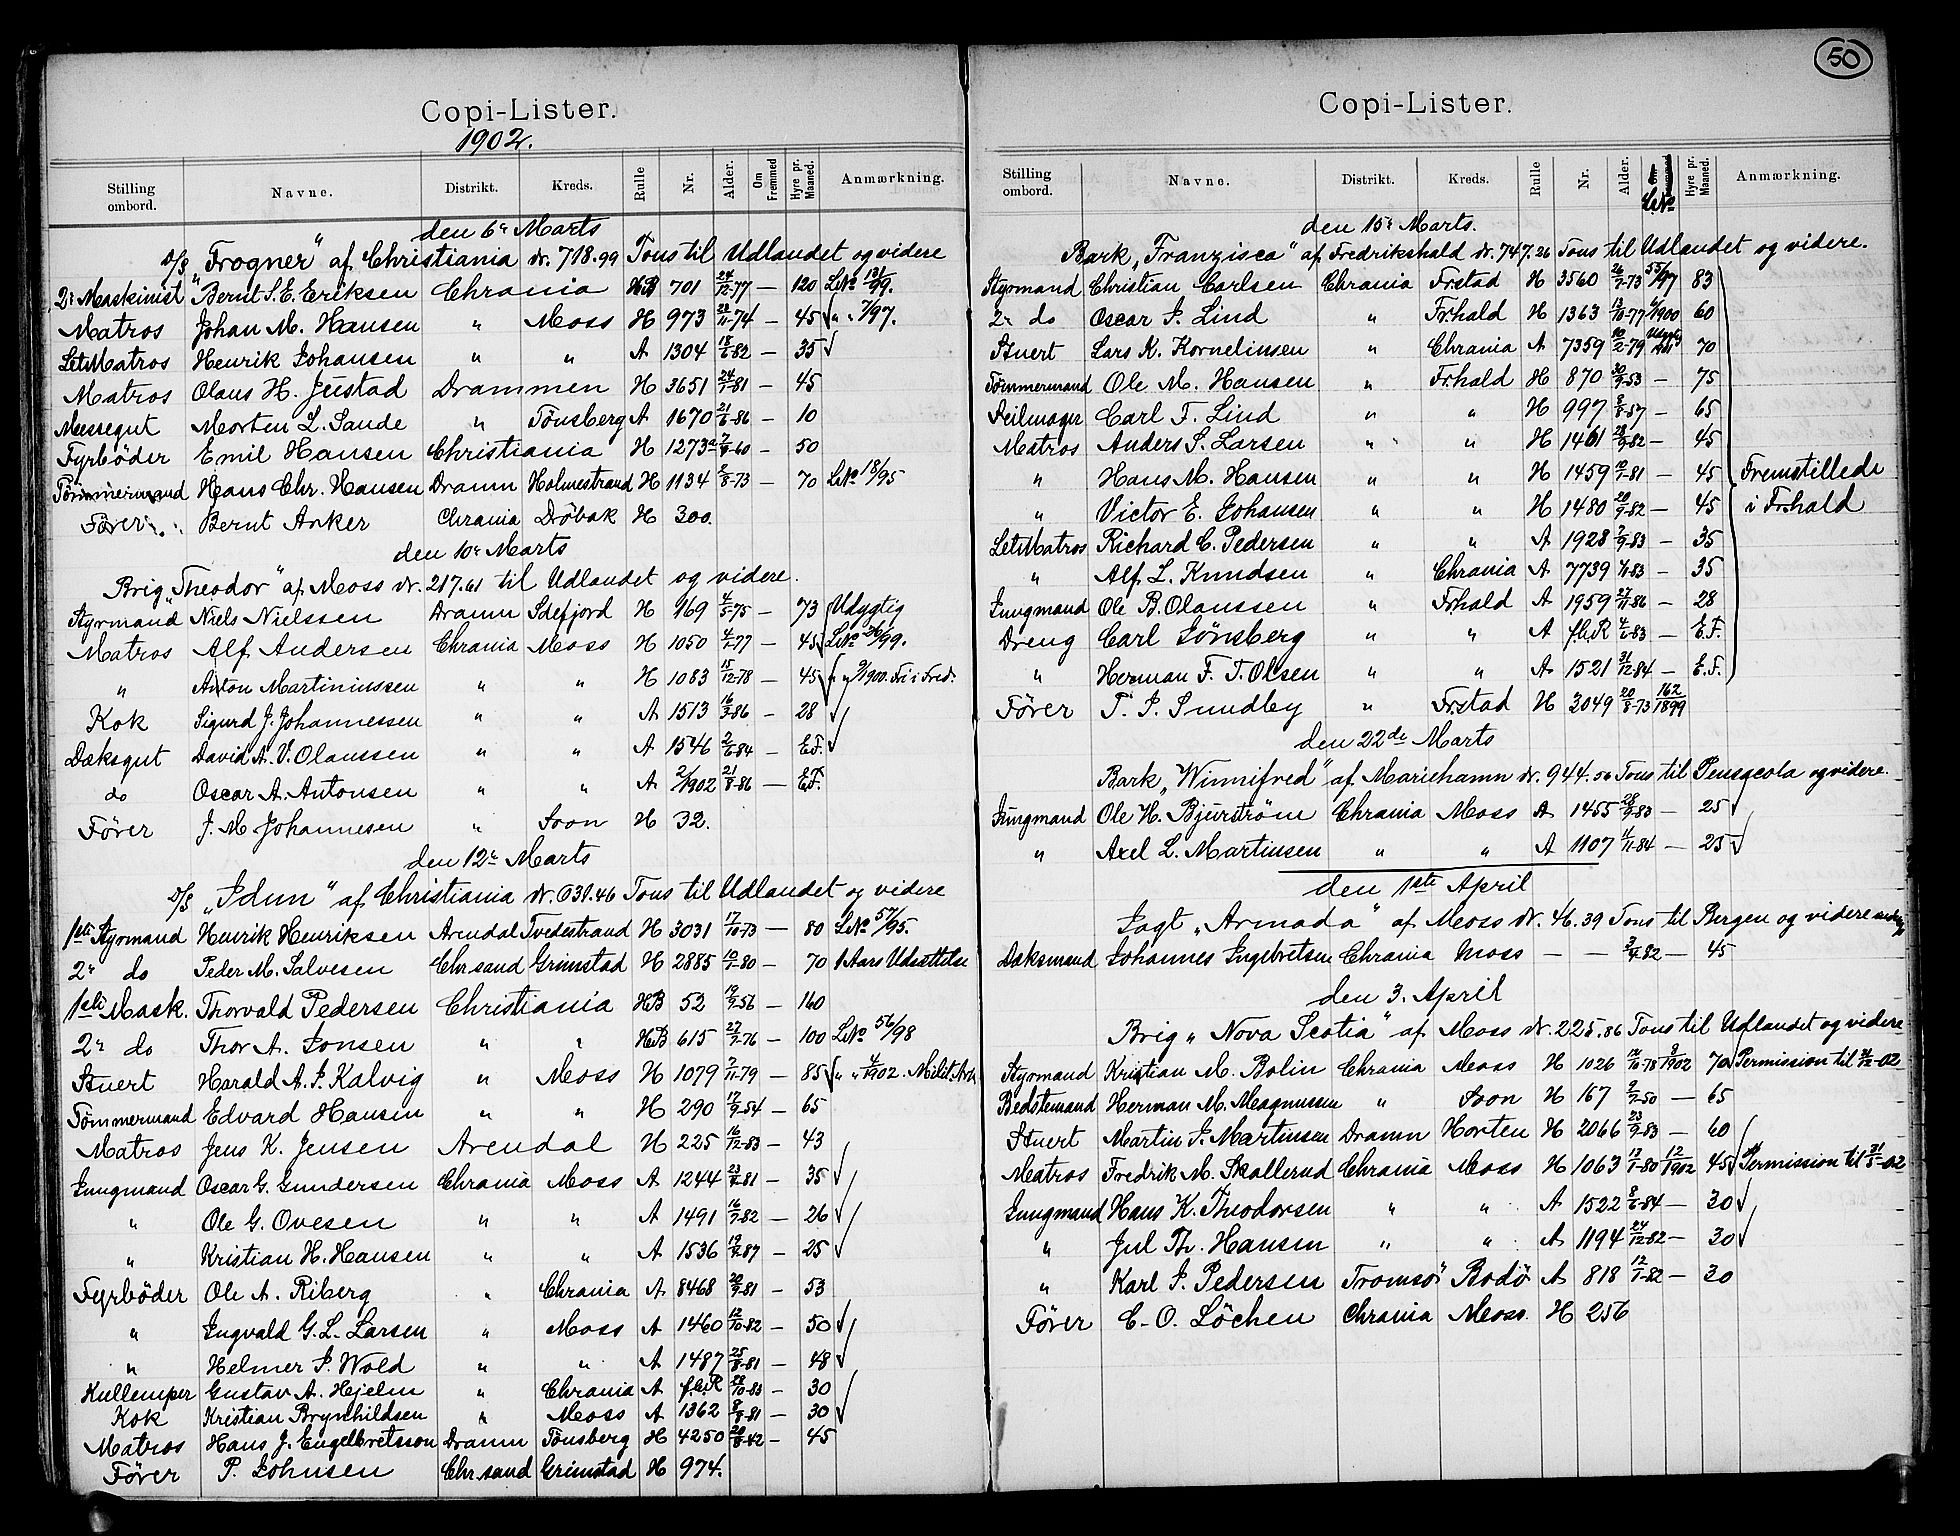 Copi-Lister.
1902.
Stilling ombord. Navne. Distrikt. Kreds. Rulle Nr. Alder. Om Fremmed Hyre pr. Maaned. Anmærkning.
den 6te Marts
D/S „Frogner" af Christiania dr. 718.99 Tons til Udlandet og videre
2n Maskinist Bernt S. E. Eriksen Chrania HB 701 24/12-77 — 120 LNo 18/99.
Matros Johan M. Hansen " Moss H 973 28/11-74 — 45 " " 7/97.
LetMatros Henrik Johansen " " A 1304 18/6-82 — 35
Matros Olaus H. Justad Drammen H 3651 24/1-81 — 45
Messegut Morten L. Sande " Tönsberg A 1670 21/6-86 — 10
Fyrböder Emil Hansen Christiania H 1273a 7/9-60 — 50
Tömmermand Hans Chr. Hansen Dramn Holmestrand H 1134 2/8-73 — 70 LNo 18/95
Förer Bernt Anker Chrania Dröbak H 300.
den 10n Marts
Brig „Theodor" af Moss dr. 217.61 til Udlandet og videre.
Styrmand Niels Nielssen Dramn Sdefjord H 169 4/5-75 — 73 Udygtig
Matros Alf Andersen Chrania Moss H 1050 4/1-77 — 45 LNo 26/99.
" Anton Martiniussen " " H 1083 15/12-78 — 45 " " 9/1900. Fri i Fred.
Kok Sigurd J. Johannessen " " A 1513 16/3-86 — 28
Dæksgut David A. V. Olaussen " " A 1546 2/6-84 — E.F.
do Oscar A. Antonsen " " A 2/1902 21/8-86 — E.F.
Förer J. M. Johannesen " Soon H 32.
den 12te Marts
D/S „Idun" af Christiania dr. 639.46 Tons til Udlandet og videre
1ste Styrmand Henrik Henriksen Arendal Tvedestrand H 3031 17/10-73 — 80 LNo 57/95.
2n do Peder M. Salvesen Chr.sand Grimstad H 2885 10/1-80 — 70 1 Aars Udsættelse
1ste Mask. Thorvald Pedersen Christiania HB 52 19/9-56 — 160
2n do Thor A. Jonsen " " HB 615 27/7-76 — 100 LNo 56/98
Stuert Harald A. J. Kalvig " Moss H 1079 7/11-79 — 85 " " 4/1902.
Tömmermand Edvard Hansen " " H 290 17/9-54 — 65
Matros Jens K. Jensen Arendal H 225 16/12-83 — 43
Jungmand Oscar G. Gundersen Chrania Moss A 1244 23/2-81 — 35
" Ole G. Ovesen " " A 1491 16/7-82 — 26
" Kristian H. Hansen " " A 1536 19/2-87 — 25
Fyrböder Ole A. Riberg " Chrania A 8468 22/9-81 — 53
" Ingvald G. L. Larsen " Moss A 1460 12/10-82 — 50
" Helmer J. Wold " " A 1487 25/8-81 — 48
Kullemper Gustav A. Hjelm " Chrania A f.b.R 28/10-83 — 30
Kok Kristian Brynhildsen " Moss A 1362 8/8-81 — 30
Matros Hans J. Engelbretsson Dramn Tönsberg H 4250 20/8-42 — 45
Förer P. Johnsen Chr.sand Grimstad H 974.
50
Copi-Lister.
Stilling ombord. Navne. Distrikt. Kreds. Rulle Nr. Alder. LNo Hyre pr. Maaned. Anmærkning.
den 15n Marts.
Bark „Franzisca" af Fredrikshald dr. 747.26 Tons til Udlandet og videre.
Styrmand Christian Carlsen Chrania Frstad H 3560 26/7-73 55/97 83
2n do Oscar J. Lind " Frhald H 1363 13/10-77 6/1900 60
Stuert Lars K. Kornelinsen " Chrania A 7359 10/2-79 70
Tömmermand Ole M. Hansen " Frhald H 870 30/9-53 — 75
Seilmager Carl F. Lind " " H 997 8/8-57 — 65
Matros Anders S. Larsen " " H 1461 28/9-82 — 45
" Hans M. Hansen " " H 1459 12/7-81 — 45 Fremstillede
" Victor E. Johansen " " H 1480 20/9-82 — 45 i Frhald
LetMatros Richard C. Pedersen " " A 1928 7/9-83 — 35
" Alf. L. Knudsen " Chrania A 7739 4/1-83 — 35
Jungmand Ole B. Olaussen " Frhald A 1959 27/11-86 — 28
Dreng Carl Jönsberg " " A f.b.R 4/6-83 — E.F.
" Herman F. T. Olsen " " A 1521 31/12-84 — E.F.
Förer T. J. Sundby " Frstad H 3049 20/8-73 162/1899
den 22de Marts
Bark „Winnifred" af Mariehamn dr. 944.56 Tons til Pensacola og videre.
Jungmand Ole H. Bjurström Chrania Moss A 1455 28/9-83 — 25
" Axel L. Martinsen " " A 1107 4/11-84 — 25
den 1ste April
Jagt „Armada" af Moss dr. 46.39 Tons til Bergen og videre
Dæksmand Johannes Ingebretsen Chrania Moss — — 2/4-82 — 45
den 3. April
Brig „Nova Scotia" af Moss dr. 225.86 Tons til Udlandet og videre
Styrmand Kristian M. Bolin Chrania Moss H 1026 12/10-78 9/1902 70 Permission til 31/12-02
Bedstemand Herman M. Magnussen " Soon H 167 9/7-50 — 65
Stuert Martin J. Martinsen Dramn Horten H 2066 23/9-83 — 60
Matros Fredrik M. Skallerud Chrania Moss H 1063 13/1-80 12/1902 45 Permission til 31/5-02
Jungmand Hans K. Theodorsen " " A 1522 8/6-84 — 30
" Jul Th. Hansen " " A 1194 24/12-82 — 30
" Karl J. Pedersen Tromsö Bodö A 818 12/1-82 — 30
Förer C. O. Löchen Chrania Moss. H 256